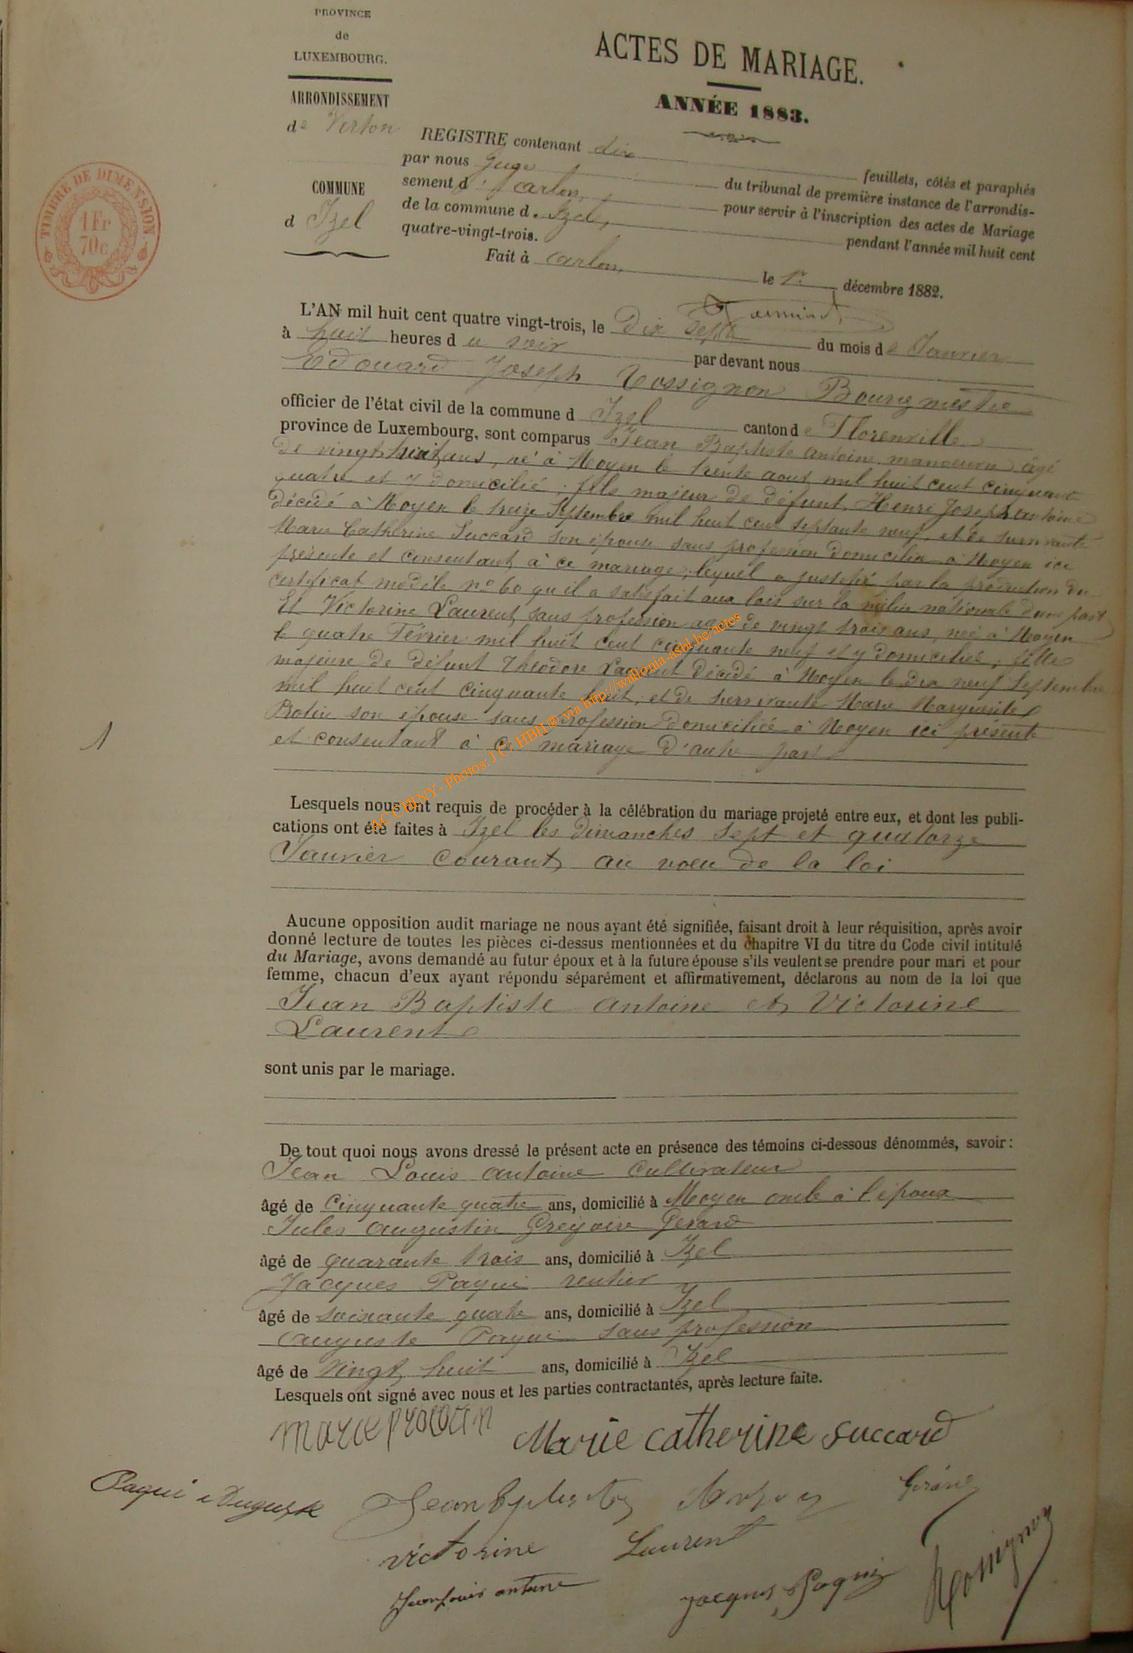 PROVINCE
de
LUXEMBOURG.
ARRONDISSEMENT
de Virton
COMMUNE
d Izel
TIMBRE DE DIMENSION
1 Fr
70c
ACTES DE MARIAGE.
ANNÉE 1883.
REGISTRE contenant dix feuillets, côtés et paraphés
par nous Juge du tribunal de première instance de l'arrondis-
sement d'arlon, pour servir à l'inscription des actes de Mariage
de la commune d'Izel, pendant l'année mil huit cent
quatre-vingt-trois.
Fait à arlon, le 1r décembre 1882.
L'AN mil huit cent quatre vingt-trois, le Dix sept du mois de Janvier
à huit heures du soir par devant nous
Edouard Joseph Rossignon Bourgmestre
officier de l'état civil de la commune d Izel canton de Florenville
province de Luxembourg, sont comparus Jean Baptiste antoine, manoeuvre âgé
de vingt huit ans, né à Moyen le trente aout mil huit cent cinquante
quatre et y domicilié ; fils majeur de défunt Henri Joseph antoine
décédé à Moyen le treize Septembre mil huit cent septante neuf, et de survivante
Marie Catherine Succard son épouse sans profession domiciliée à Moyen ici
présente et consentant à ce mariage ; lequel a justifié par la production du
certificat modèle no 60 qu'il a satisfait aux lois sur la milice nationale d'une part
Et Victorine Laurent, sans profession agée de vingt trois ans, née à Moyen
le quatre Février mil huit cent cinquante neuf et y domiciliée, fille
majeure de défunt Théodore Laurent décédé à Moyen le dix neuf Septembre
mil huit cent cinquante huit, et de survivante Marie Marguerite
son épouse sans profession domiciliée à Moyen ici présente
et consentant à ce mariage d'autre part
1
Lesquels nous ont requis de procéder à la célébration du mariage projeté entre eux, et dont les publi-
cations ont été faites à Izel les dimanches sept et quatorze
Janvier courant, au voeu de la loi
Aucune opposition audit mariage ne nous ayant été signifiée, faisant droit à leur réquisition, après avoir
donné lecture de toutes les pièces ci-dessus mentionnées et du chapitre VI du titre du Code civil intitulé
du Mariage, avons demandé au futur époux et à la future épouse s'ils veulent se prendre pour mari et pour
femme, chacun d'eux ayant répondu séparément et affirmativement, déclarons au nom de la loi que
Jean Baptiste antoine et Victorine
Laurent
sont unis par le mariage.
De tout quoi nous avons dressé le présent acte en présence des témoins ci-dessous dénommés, savoir :
Jean Louis antoine cultivateur
âgé de Cinquante quatre ans, domicilié à Moyen oncle à l'époux
Jules augustin Grégoire Gérard
âgé de quarante trois ans, domicilié à Izel
Jacques Paqui rentier
âgé de soixante quatre ans, domicilié à Izel
auguste Paqui sans profession
âgé de Vingt huit ans, domicilié à Izel
Lesquels ont signé avec nous et les parties contractantes, après lecture faite.
Marie catherine succard
Paqui
Gérard
victorine Laurent
Jean louis antoine
jacques Paqui
Rossignon
AC CHINY - Photos J.C. HBN © via http://wallonia-asbl.be/actes